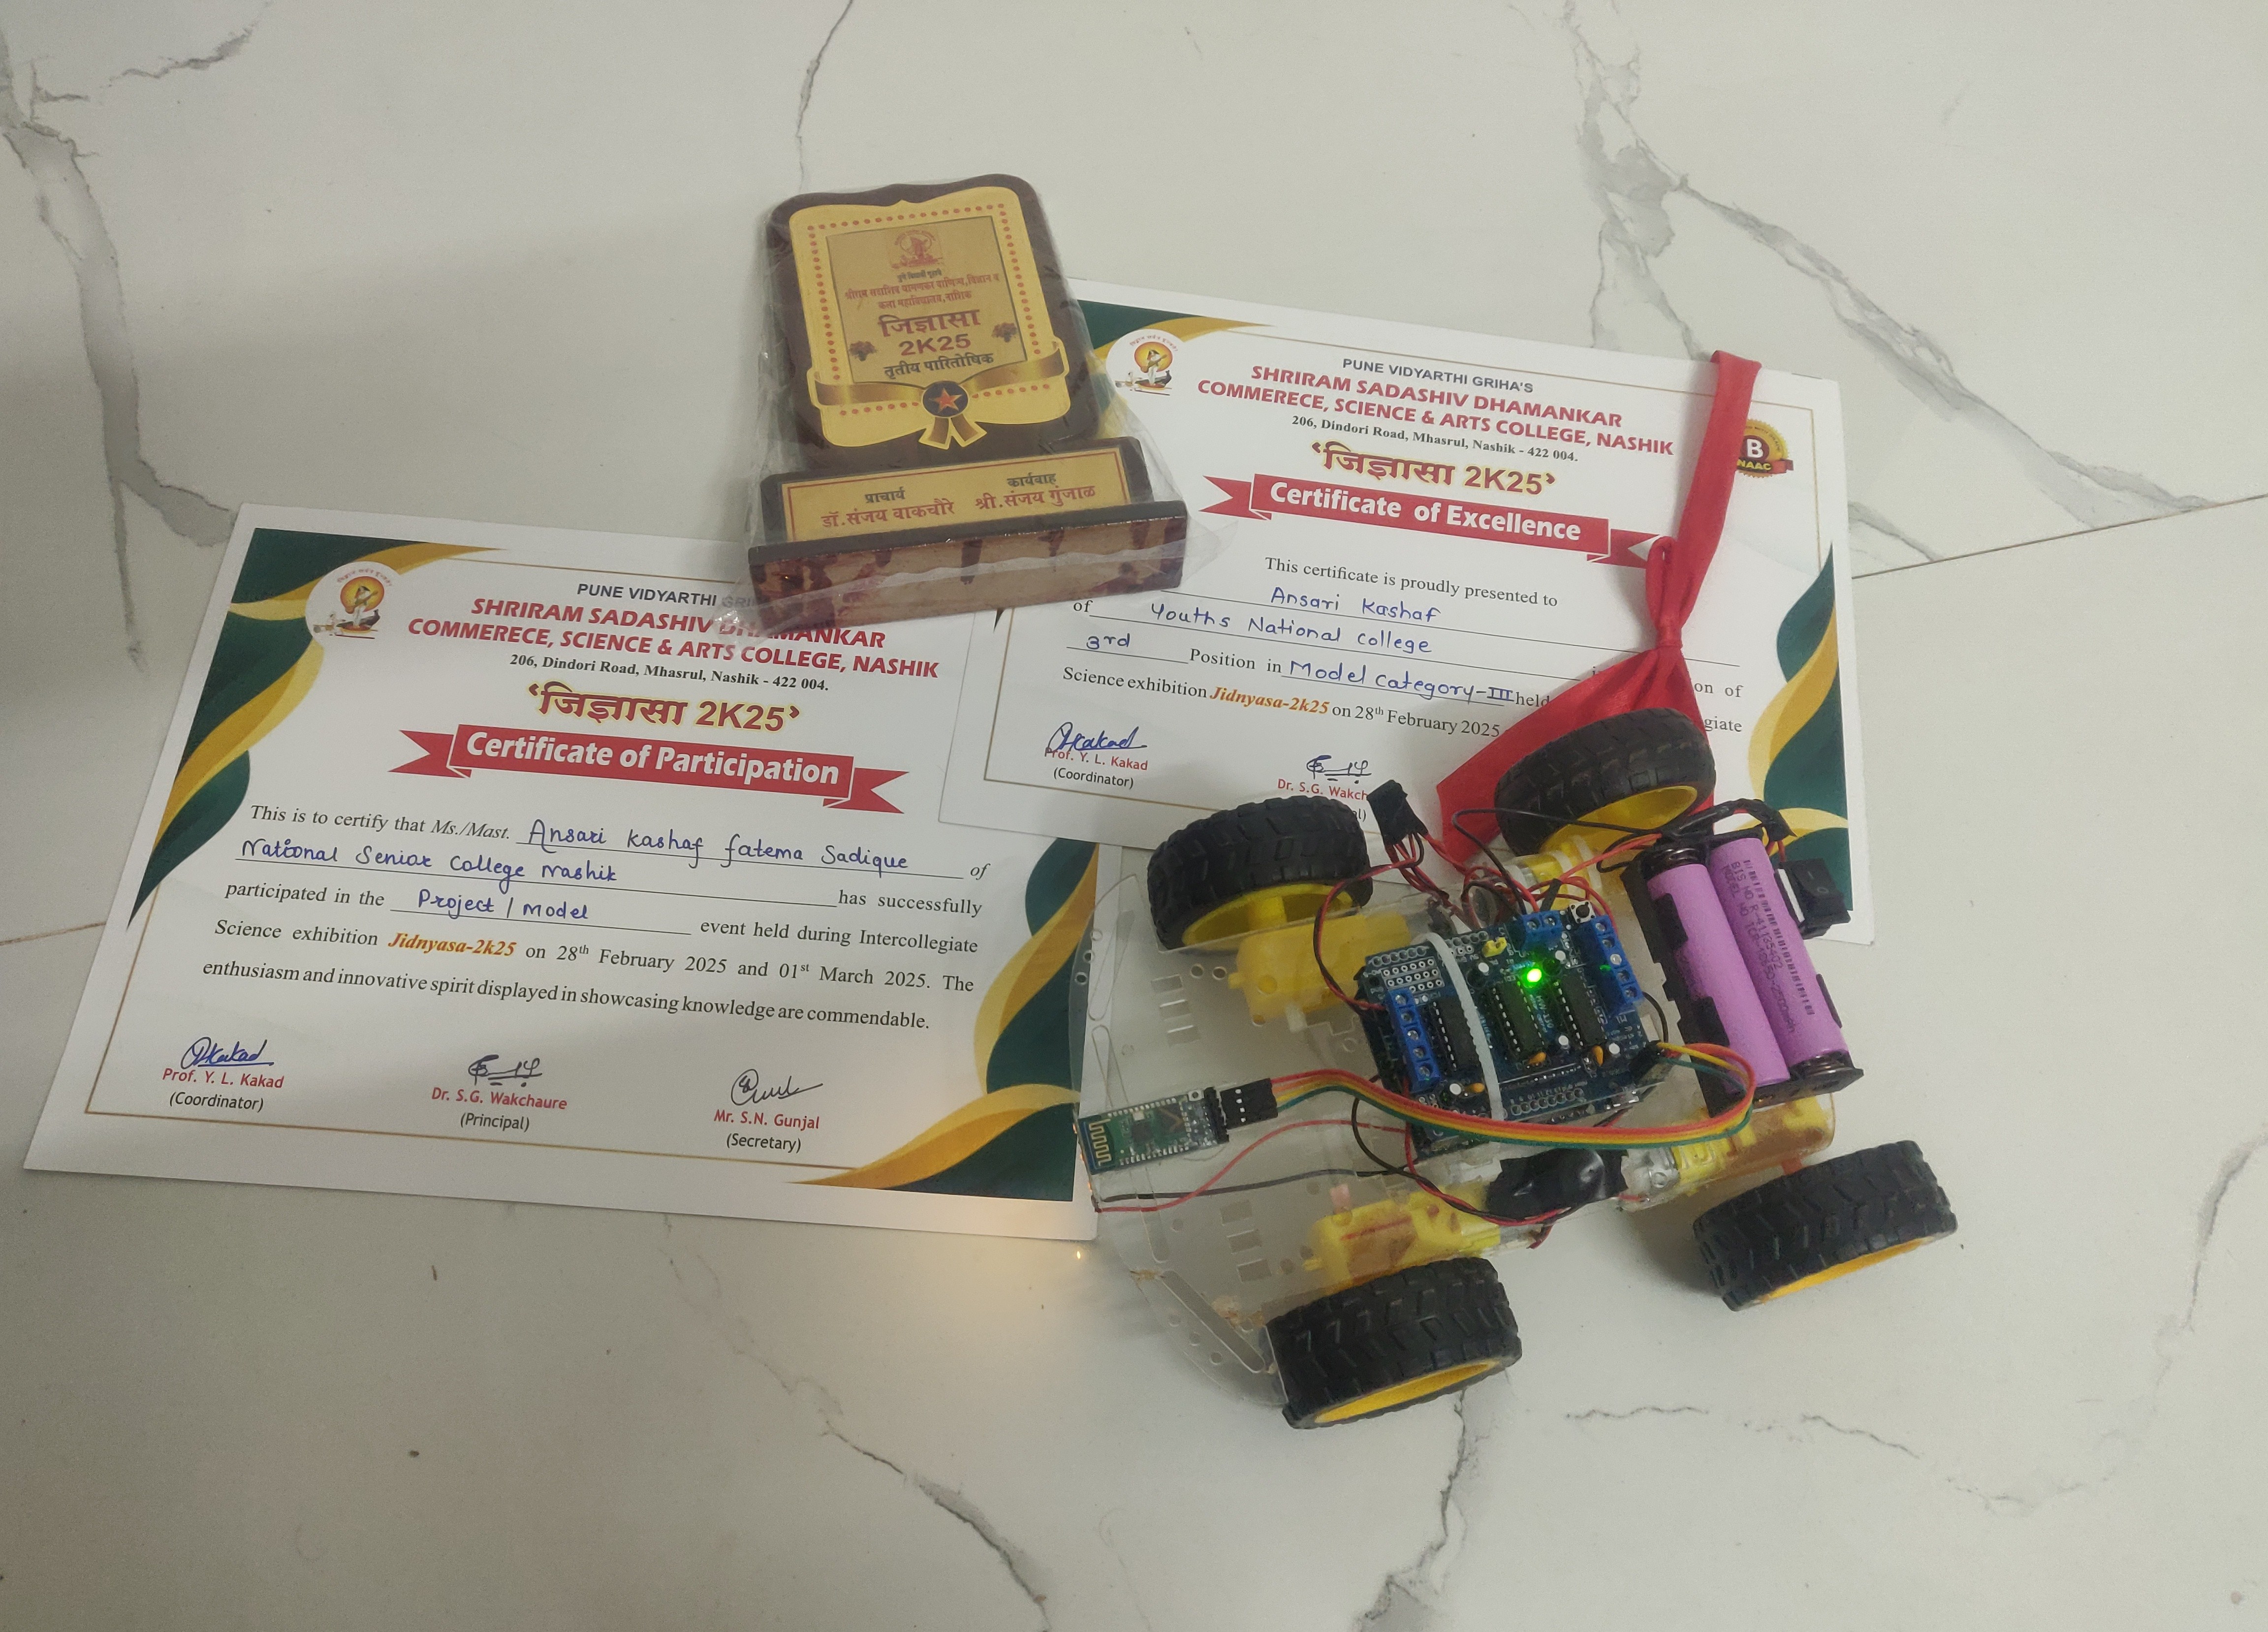 पुणे विद्यार्थी गृहाचे
श्रीराम सदाशिव धामणकर वाणिज्य, विज्ञान व
कला महाविद्यालय, नाशिक
जिज्ञासा
2K25
तृतीय पारितोषिक
प्राचार्य
डॉ. संजय वाकचौरे
कार्यवाह
श्री. संजय गुंजाळ
PUNE VIDYARTHI GRIHA'S
SHRIRAM SADASHIV DHAMANKAR
COMMERECE, SCIENCE & ARTS COLLEGE, NASHIK
206, Dindori Road, Mhasrul, Nashik - 422 004.
‘जिज्ञासा 2K25’
B
NAAC
Certificate of Excellence
This certificate is proudly presented to
Ansari Kashaf
of Youths National college
3rd Position in Model Category-III held
Science exhibition Jidnyasa-2k25 on 28th February 2025
Prof. Y. L. Kakad
(Coordinator)
Dr. S.G. Wakch
PUNE VIDYARTHI GRI
SHRIRAM SADASHIV DHAMANKAR
COMMERECE, SCIENCE & ARTS COLLEGE, NASHIK
206, Dindori Road, Mhasrul, Nashik - 422 004.
‘जिज्ञासा 2K25’
Certificate of Participation
This is to certify that Ms./Mast. Ansari Kashaf fatema Sadique
National Senior College Nashik of
has successfully
participated in the Project / Model event held during Intercollegiate
Science exhibition Jidnyasa-2k25 on 28th February 2025 and 01st March 2025. The
enthusiasm and innovative spirit displayed in showcasing knowledge are commendable.
Prof. Y. L. Kakad
(Coordinator)
Dr. S.G. Wakchaure
(Principal)
Mr. S.N. Gunjal
(Secretary)